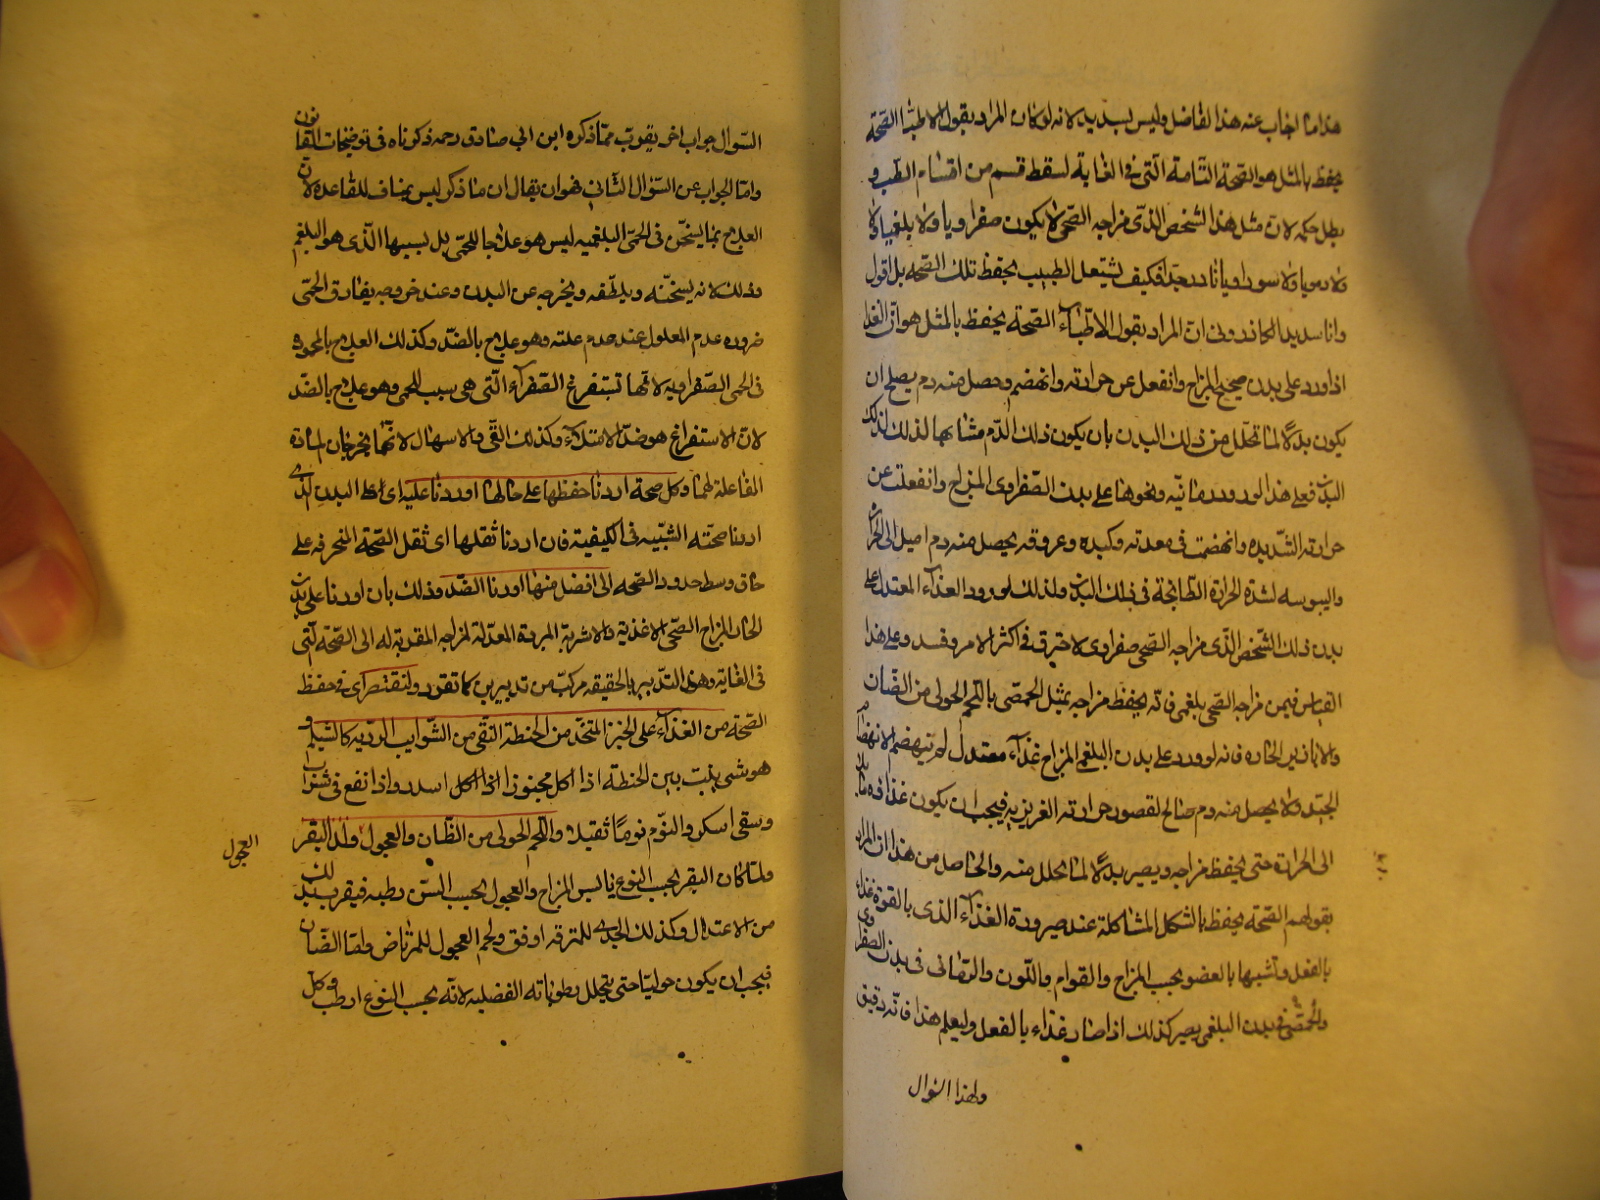 هذا ما اجاب عنه هذا الفاضل وليس بسديد لانه لو كان المراد بقول الاطبا الصحة
يحفظ بالمثل هو الصحة التامة التى فى الغاية لسقط قسم من اقسام الطب و
بطل حكمه لان مثل هذا الشخص الذى مزاجه الصحى لا يكون صفراويا ولا بلغميا ولا
ولا دمويا ولا سوداويا نادر جدا فكيف يشتغل الطبيب بحفظ تلك الصحة بل اقول
وانا سديد الكازرونى ان المراد بقول الاطباء الصحة يحفظ بالمثل هو ان الغذا
اذا ورد على بدن صحيح المزاج وانفعل عن حرارته وانهضم وحصل منه دم يصلح ان
يكون بدلا لما تحلل من ذلك البدن بان يكون ذلك الدم مشابها لذلك
البدن فعلى هذا لو ورد ونحوها على بدن الصفراوى المزاج وانفعلت عن
حرارته الشديده وانهضمت فى معدته وكبده وعروقه يحصل منه دم اميل الى الحرارة
واليبوسه لشدة الحرارة الطابخة فى ذلك البدن ولذلك لو ورد الغذاء المعتدل على
بدن ذلك الشخص الذى مزاجه الصحى صفراوى لاحترق فى اكثر الامر وفسد وعلى هذا
القياس فيمن مزاجه الصحى بلغمى فانه يحفظ مزاجه بمثل الحمصى باللحم الحولى من الضان
والابازير الحاره فانه لو ورد على بدن البلغمى المزاج غذاء معتدل لم ينهضم الانهضام
الجيد ولا يحصل منه دم صالح لقصور حرارته الغريزيه فيجب ان يكون غذاؤه مايلا
الى الحرارة حتى يحفظ مزاجه ويصير بدلا لما تحلل منه والحاصل من هذا ان المراد
بقولهم الصحة يحفظ بالشكل المشاكلة عند صيرورة الغذاء الذى بالقوة غذاء
بالفعل وتشبهها بالعضو بحسب المزاج والقوام واللون فى بدن الصفراوى
والحمصى فى بدن البلغمى يصير كذلك اذا صار غذاء بالفعل وليعلم هذا فانه دقيق
ولهذا السوال
السوال جواب اخر يقرب مما ذكره ابن ابى صادق رحمه ذكرناه فى توضيحات القانون
واما الجواب عن السؤال الثانى فهو ان يقال ان ما ذكر ليس بمناف للقاعده لان
العلاج بما يسخن فى الحمى البلغميه ليس هو علاجا للحمى بل لسببها الذى هو البلغم
وذلك لانه يسخنه ويلطفه ويخرجه عن البدن وعند خروجه يفارق الحمى
ضروره عدم المعلول عند عدم علته وهو علاج بالضد وكذلك العلاج بالمحموده
فى الحمى الصفراويه لانها تستفرغ الصفراء التى هى سبب للحمى وهو علاج بالضد
لان الاستفراغ هو ضد الامتلاء وكذلك القى والاسهال لانهما يخرجان المادة
الفاعلة لهما وكل صحة اردنا حفظها على حالها اوردنا عليه اى على البدن الذى
اردنا صحته الشبيه فى الكيفية فان اردنا نقلها اى نقل الصحة المنحرفه على
حاق وسط حدود الصحه الى افضل منها اوردنا الضد وذلك بان اوردنا على بدن
الحار المزاج الصحى الاغذية والاشربة المبردة المعدلة لمزاجه المقربة له الى الصحة التى
فى الغاية وهذا التدبير بالحقيقه مركب من تدبيرين كما تقرر ولنقتصر اى فى حفظ
الصحة من الغذاء على الخبز المتخذ من الحنطة النقى من الشوايب الرديه كالشيلم و
هو شى ينبت بين الحنطة اذا اكل مخبوزا اذا اكل اسدر واذا نقع فى شراب
وسقى اسكر والنوم نوما ثقيلا واللحم الحولى من الضان والعجول ولد البقر
العجول
ولما كان البقر بحسب النوع يابس المزاج والعجول بحسب السن رطبه فيقرب بذلك
من الاعتدال وكذلك الجدى للمترفه اوفق ولحم العجول للمرتاض واما الضان
فيجب ان يكون حوليا حتى يتحلل رطوباته الفضليه لانه بحسب النوع ارطب وكل